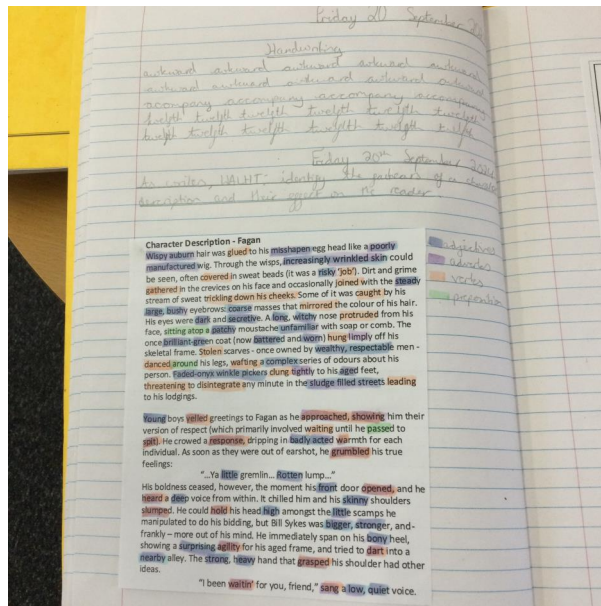 Friday 20 September
Handwriting
awkward awkward awkward awkward awkward
awkward awkward awkward awkward awkward
accompany accompany accompany accompany
twelfth twelfth twelfth twelfth twelfth
twelfth twelfth twelfth twelfth
Friday 20th September
As writers, WALHT: identify the features of a character
description and their effect on the reader
adjectives
adverbs
verbs
preposition
Character Description - Fagan
Wispy auburn hair was glued to his misshapen egg head like a poorly
manufactured wig. Through the wisps, increasingly wrinkled skin could
be seen, often covered in sweat beads (it was a risky 'job'). Dirt and grime
gathered in the crevices on his face and occasionally joined with the steady
stream of sweat trickling down his cheeks. Some of it was caught by his
large, bushy eyebrows: coarse masses that mirrored the colour of his hair.
His eyes were dark and secretive. A long, witchy nose protruded from his
face, sitting atop a patchy moustache unfamiliar with soap or comb. The
once brilliant-green coat (now battered and worn) hung limply off his
skeletal frame. Stolen scarves - once owned by wealthy, respectable men -
danced around his legs, wafting a complex series of odours about his
person. Faded-onyx winkle pickers clung tightly to his aged feet,
threatening to disintegrate any minute in the sludge filled streets leading
to his lodgings.
Young boys yelled greetings to Fagan as he approached, showing him their
version of respect (which primarily involved waiting until he passed to
spit). He crowed a response, dripping in badly acted warmth for each
individual. As soon as they were out of earshot, he grumbled his true
feelings:
"...Ya little gremlin... Rotten lump..."
His boldness ceased, however, the moment his front door opened, and he
heard a deep voice from within. It chilled him and his skinny shoulders
slumped. He could hold his head high amongst the little scamps he
manipulated to do his bidding, but Bill Sykes was bigger, stronger, and-
frankly – more out of his mind. He immediately span on his bony heel,
showing a surprising agility for his aged frame, and tried to dart into a
nearby alley. The strong, heavy hand that grasped his shoulder had other
ideas.
"I been waitin' for you, friend," sang a low, quiet voice.